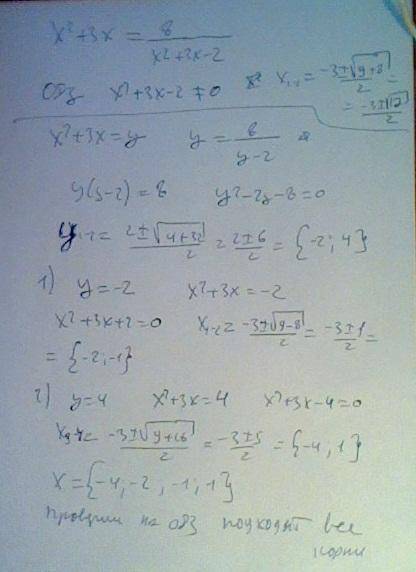 x²+3x = 8/(x²+3x-2)
ОДЗ x²+3x-2 ≠ 0 x₁,₂ = (-3±√(9+8))/2 =
= (-3±√17)/2
x²+3x=y y = 8/(y-2)
y(y-2) = 8 y²-2y-8=0
y₁,₂ = (2±√(4+32))/2 = (2±6)/2 = {-2; 4}
1) y=-2 x²+3x=-2
x²+3x+2=0 x₁,₂ = (-3±√(9-8))/2 = (-3±1)/2 =
= {-2;-1}
2) y=4 x²+3x=4 x²+3x-4=0
x₃,₄ = (-3±√(9+16))/2 = (-3±5)/2 = {-4, 1}
x = {-4, -2, -1, 1}
на ОДЗ подходят все
корни